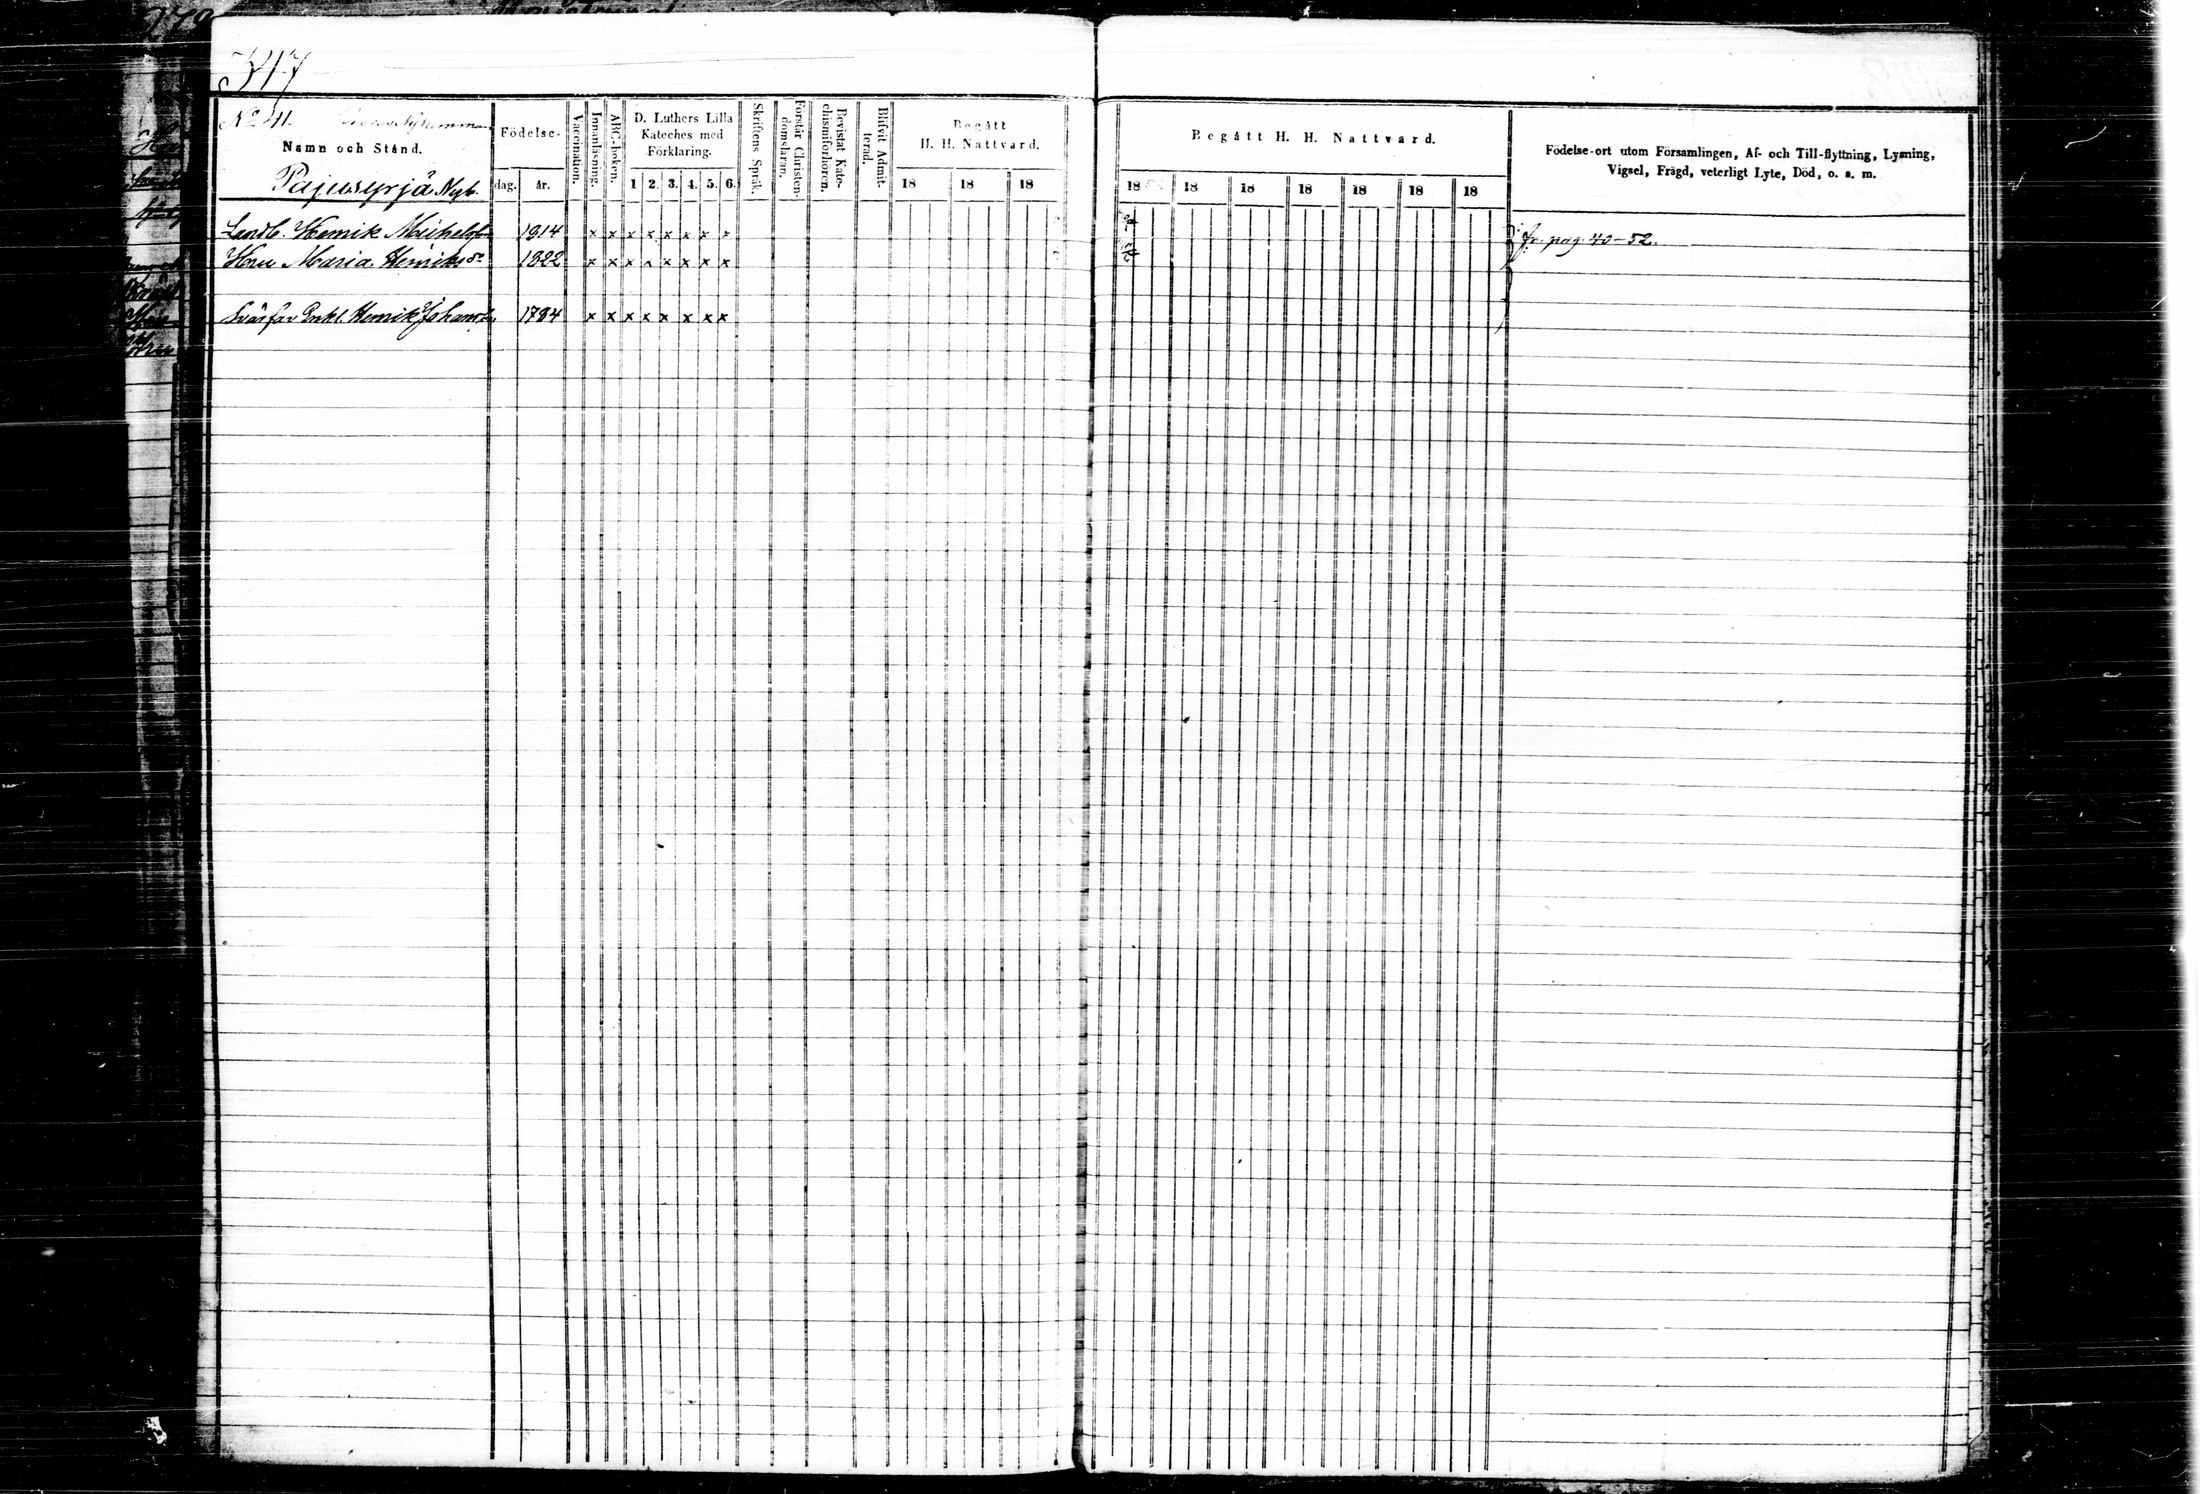 347
No 41.
Namn och Stånd.
Födelse-
dag. år.
Vaccination.
Innanläsning.
ABC-boken.
D. Luthers Lilla
Kateches med
Förklaring.
1 2. 3. 4. 5. 6.
Skriftens Språk.
Förstår Christen-
domsläran.
Bevistat Kate-
chismiförhören.
Blifvit Admit-
terad.
Begått
H. H. Nattvard.
18 18 18
Begått H. H. Nattvard.
18 18 18 18 18 18 18
Födelse-ort utom Församlingen, Af- och Till-flyttning, Lysning,
Vigsel, Frägd, veterligt Lyte, Död, o. s. m.
Pajusyrjä Nyb.
Landb. Henrik Michelss. 1814 x x x x x x x x fr. pag. 40-52.
Hru Maria Henriksdr 1822 x x x x x x x x
Svärfar Enkl. Henrik Johanss. 1784 x x x x x x x x